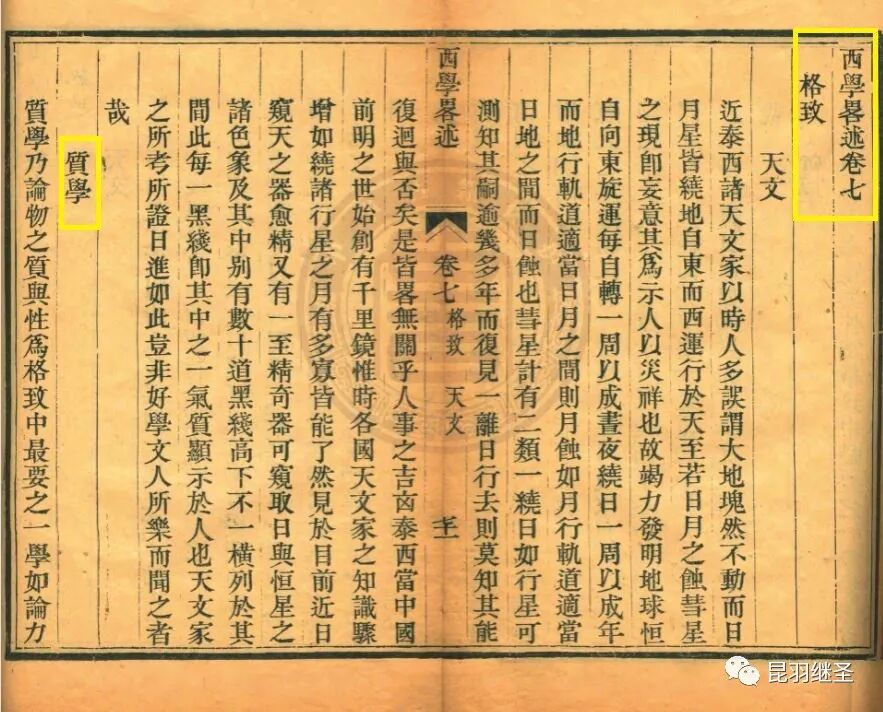 西學畧述卷七
格致
天文
近泰西諸天文家以時人多誤謂大地塊然不動而日
月星皆繞地自東而西運行於天至若日月之蝕彗星
之現卽妄意其爲示人以災祥也故竭力發明地球恒
自向東旋運每自轉一周以成晝夜繞日一周以成年
而地行軌道適當日月之間則月蝕如月行軌道適當
日地之間而日蝕也彗星計有二類一繞日如行星可
測知其嗣逾幾多年而復見一離日行去則莫知其能
西學畧述
卷七 格致 天文
復迴與否矣是皆畧無關乎人事之吉凶泰西當中國
前明之世始創有千里鏡惟時各國天文家之知識驟
增如繞諸行星之月有多寡皆能了然見於目前近日
窺天之器愈精又有一至精奇器可窺取日與恒星之
諸色象及其中別有數十道黑綫高下不一橫列於其
間此每一黑綫卽其中之一氣質顯示於人也天文家
之所考所證日進如此豈非好學文人所樂而聞之者
哉
質學
質學乃論物之質與性爲格致中最要之一學如論力
昆羽继圣